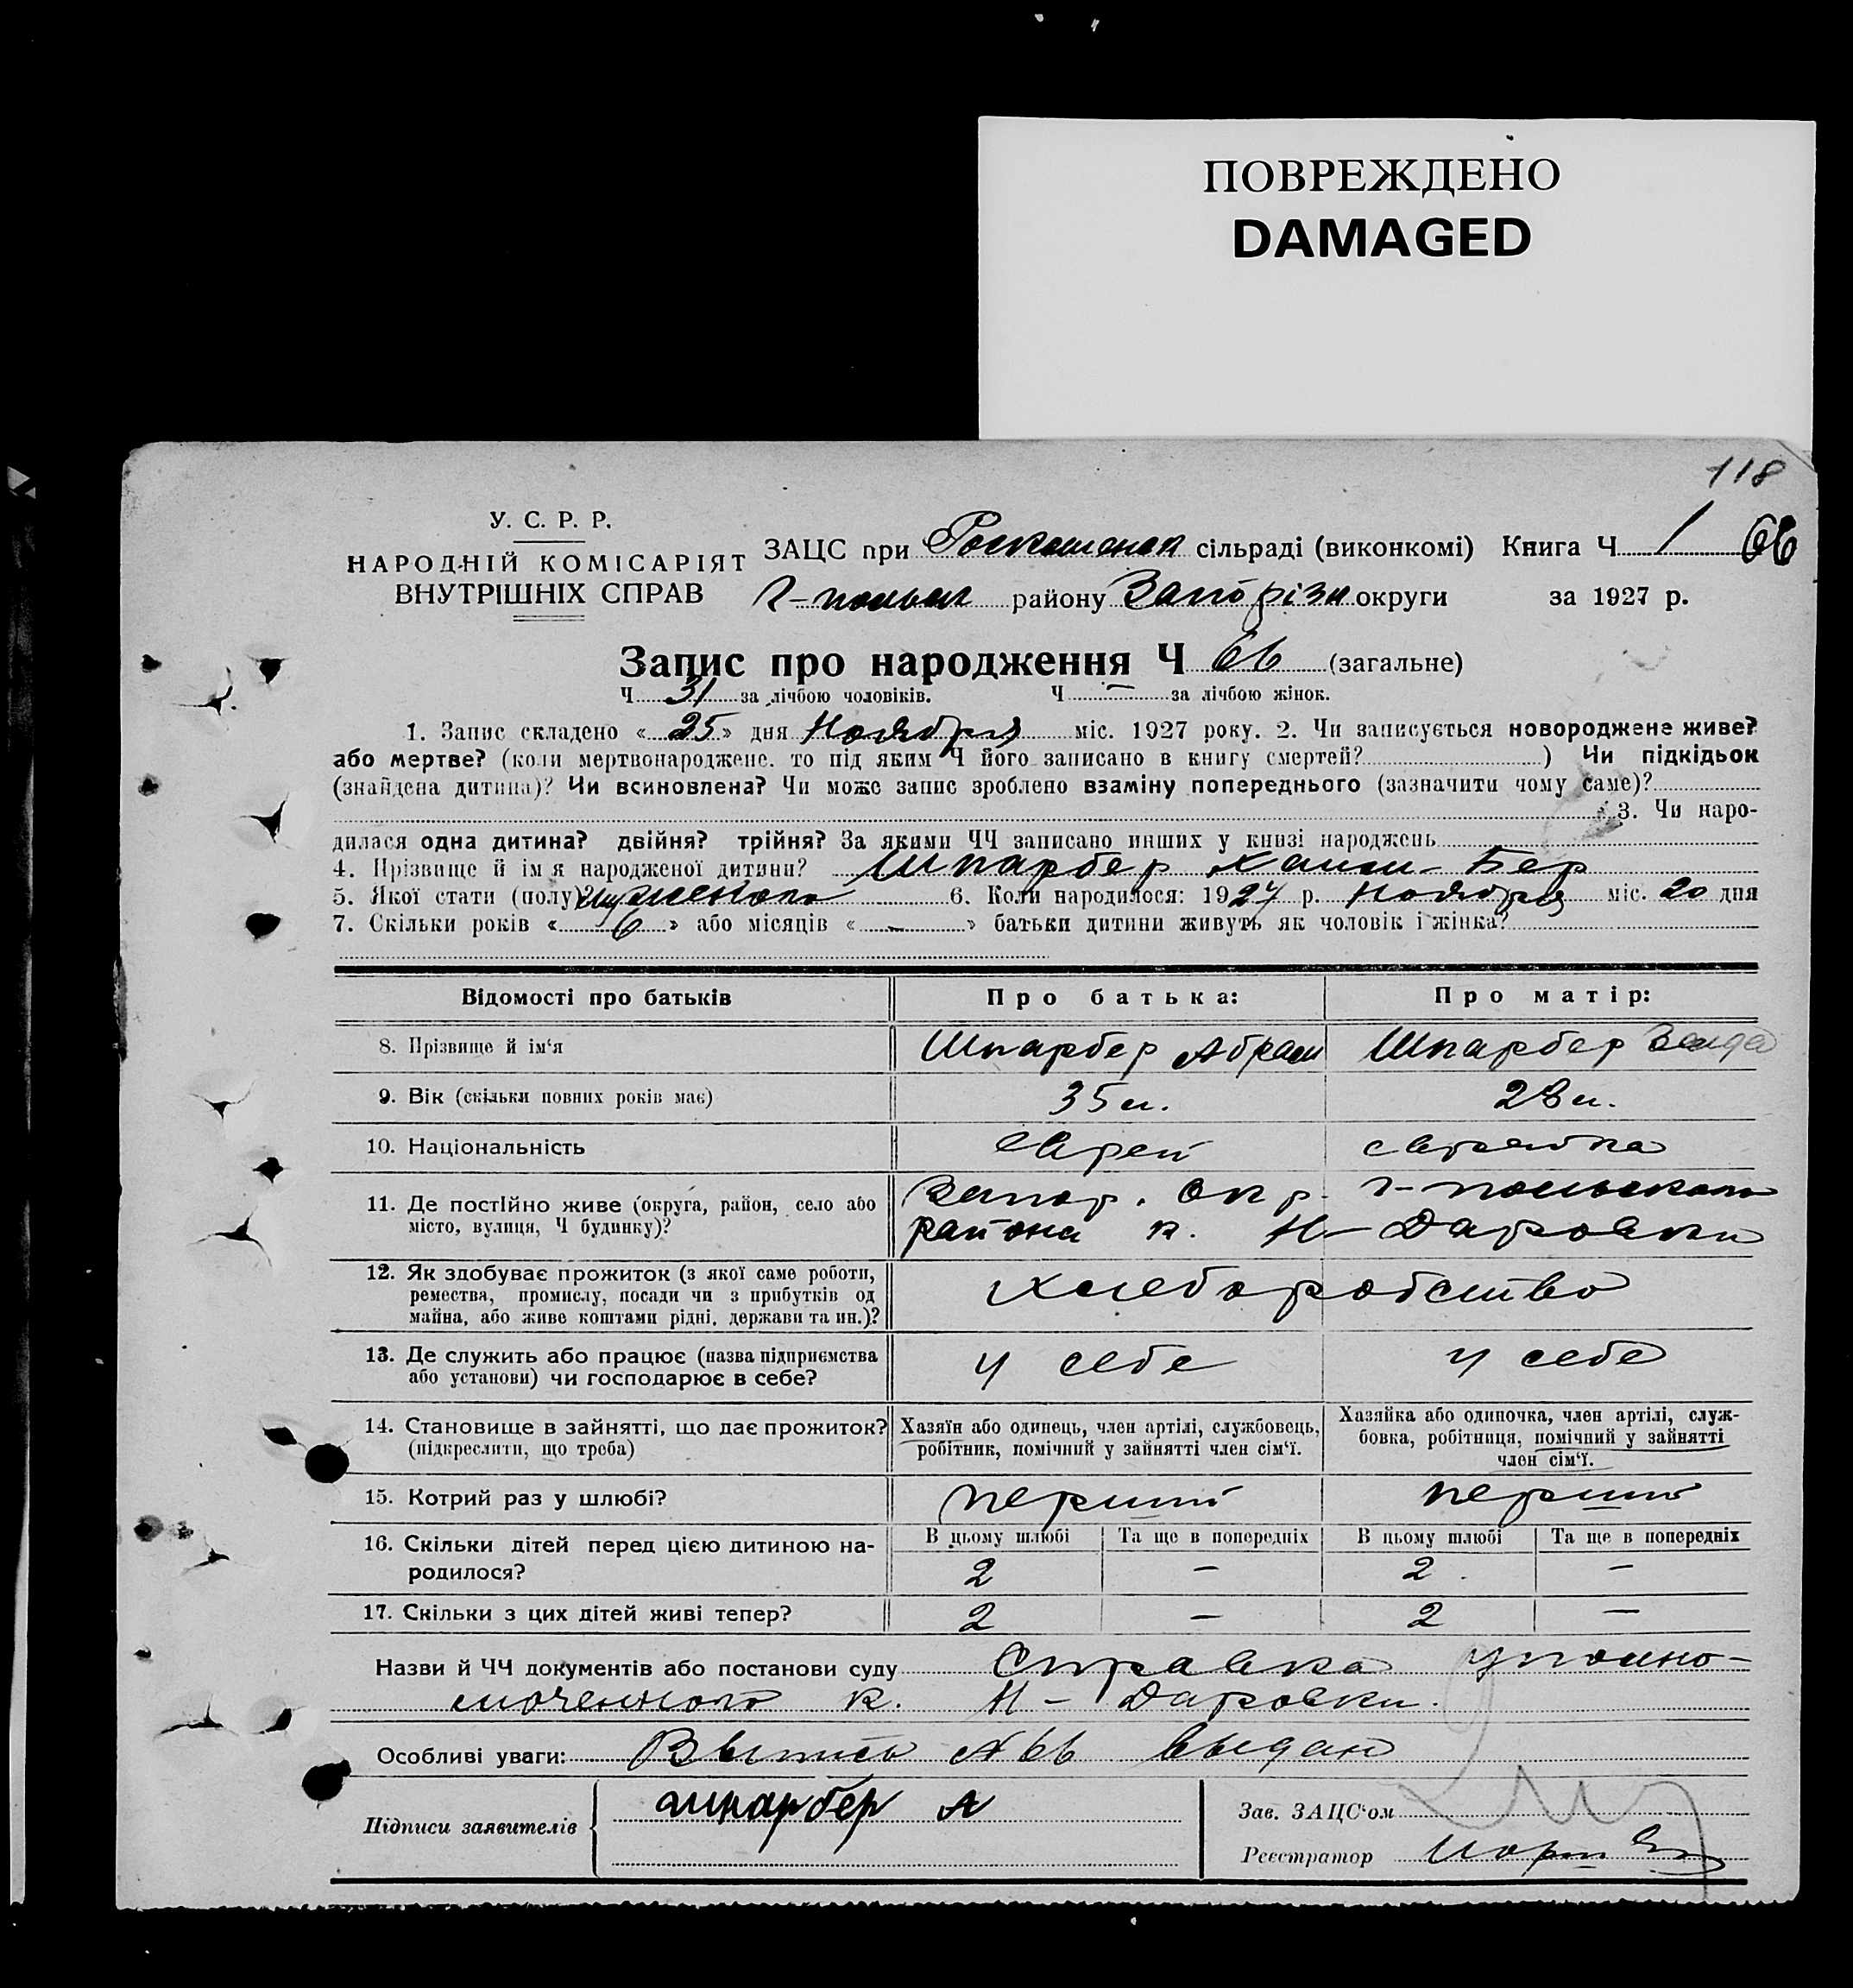 ПОВРЕЖДЕНО
DAMAGED
118
У. С. Р. Р.
НАРОДНІЙ КОМІСАРІЯТ
ВНУТРІШНІХ СПРАВ
ЗАЦС при Роскошанск сільраді (виконкомі) Книга Ч 1 66
г-польск району Запорізк округи за 1927 р.
Запис про народження Ч 66 (загальне)
Ч 31 за лічбою чоловіків. Ч — за лічбою жінок.
1. Запис складено « 25 » дня Ноября міс. 1927 року. 2. Чи записується новороджене живе?
або мертве? (коли мертвонароджене. то під яким Ч його записано в книгу смертей? ) Чи підкідьок
(знайдена дитина)? Чи всиновлена? Чи може запис зроблено взаміну попереднього (зазначити чому саме)?
3. Чи наро-
дилася одна дитина? двійня? трійня? За якими ЧЧ записано инших у книзі народжень
4. Прізвище й ім я народженої дитини? Шпарбер Хаим-Бер
5. Якої стати (полу) мужеского 6. Коли народилося: 1927 р. Ноября міс. 20 дня
7. Скільки років « 6 » або місяців « — » батьки дитини живуть як чоловік і жінка?
Відомості про батьків Про батька: Про матір:
8. Прізвище й ім'я Шпарбер Абрам Шпарбер Зелда
9. Вік (скільки повних років має) 35 л. 28 л.
10. Національність еврей еврейка
11. Де постійно живе (округа, район, село або місто, вулиця, Ч будинку)? Запор. Окр. г-польского
района к. Н-Даровки
12. Як здобуває прожиток (з якої саме роботи,
ремества, промислу, посади чи з прибутків од
майна, або живе коштами рідні, держави та ин.)? Хлеборобство
13. Де служить або працює (назва підприємства
або установи) чи господарює в себе? у себе у себе
14. Становище в зайнятті, що дає прожиток?
(підкреслити, що треба)
Хазяїн або одинець, член артілі, службовець,
робітник, помічний у зайнятті член сім'ї.
Хазяйка або одиночка, член артілі, служ-
бовка, робітниця, помічний у зайнятті
член сім'ї.
15. Котрий раз у шлюбі? перший перший
16. Скільки дітей перед цією дитиною на-
родилося?
В цьому шлюбі Та ще в попередніх В цьому шлюбі Та ще в попередніх
2 — 2 —
17. Скільки з цих дітей живі тепер? 2 — 2 —
Назви й ЧЧ документів або постанови суду Справка уполно-
моченного к. Н-Даровки.
Особливі уваги: Выпись №66 выдан
Підписи заявителів Шпарбер А
Зав. ЗАЦС'ом
Реєстратор